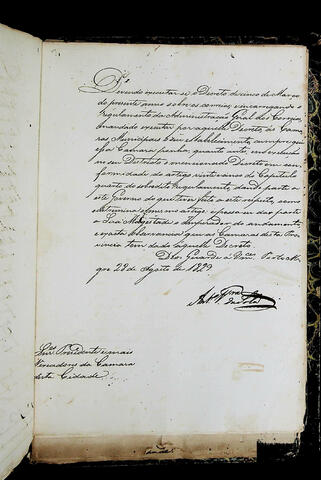 Devendo executar-se o Decreto de cinco de Março
do presente anno sobre os correios, encarregando o
Regulamento da Administração Geral dos Correios,
mandado executar por aquelle Decreto, às Cama
ras Municipaes o seu estabelecimento, cumpre que
essa Camara ponha, quanto ante, em execução
no seu Districto o mencionado Decreto em con
formidade do artigo vinte e cinco do Capitulo
quarto do sobredito Regulamento, dando parte a
este Governo do que tiver feito a este respeito, como
determina o mesmo artigo, e possa eu dar parte
a Sua Magestade o Imperador do andamento,
e exacta observancia que as Camaras desta Pro
vincia tem dado àquelle Decreto.
Deos Guarde a Vm.ces
28 de Agosto de 1829
Snr.es Presidente e mais
Vereadores da Camara
desta Cidade